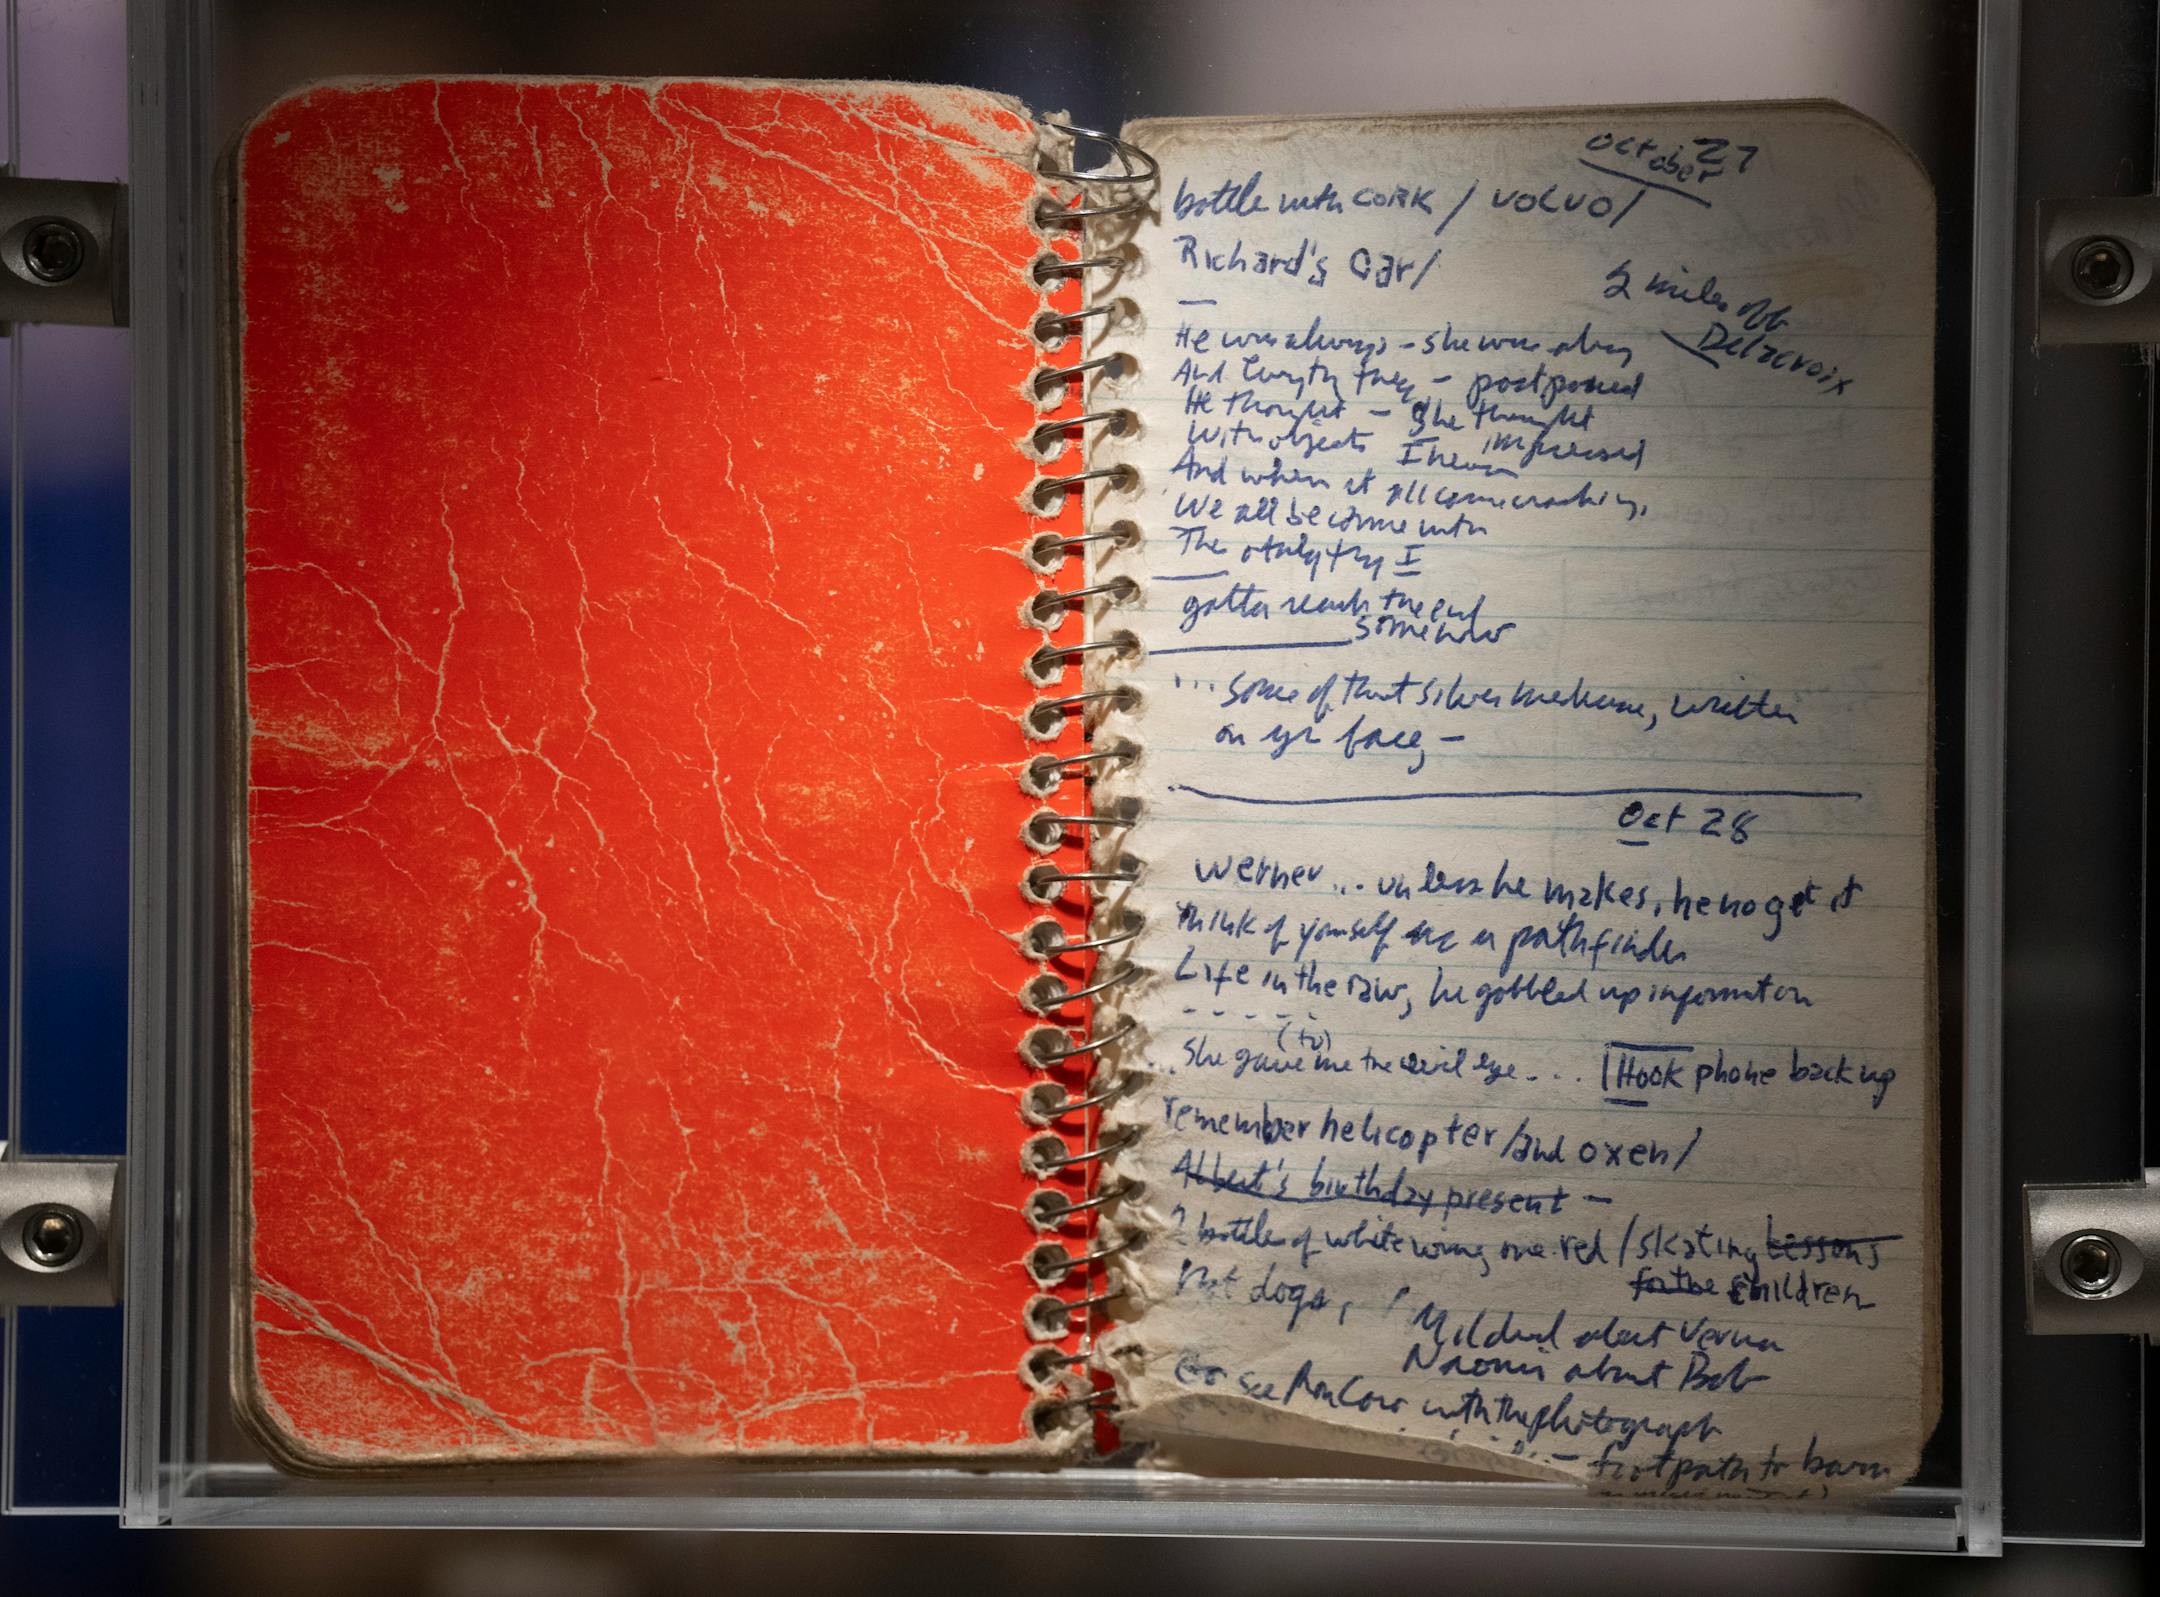 October 27
bottle with CORK / VOLVO /
Richard's Car /
2 miles off
Delacroix
He was always - she was always
And They - postponed
He thought - She thought
With objects I never impressed
And when it all came crashing,
We all become with
The I
gotta reach the end
somehow
... some of that silver medicine, written
on yr face, -
Oct 28
Werner... unless he makes, he no get it
Think of yourself as a pathfinder
Life in the raw, he gobbled up information
- - - - -
(to)
... She gave me the evil eye... Hook phone back up
remember helicopter / and oxen /
Albert's birthday present -
2 bottles of white wine, one red / skating Lessons
for the children
Hot dogs,
Mildred about Verna
Naomi about Bob
Go see with the photograph
footpath to barn